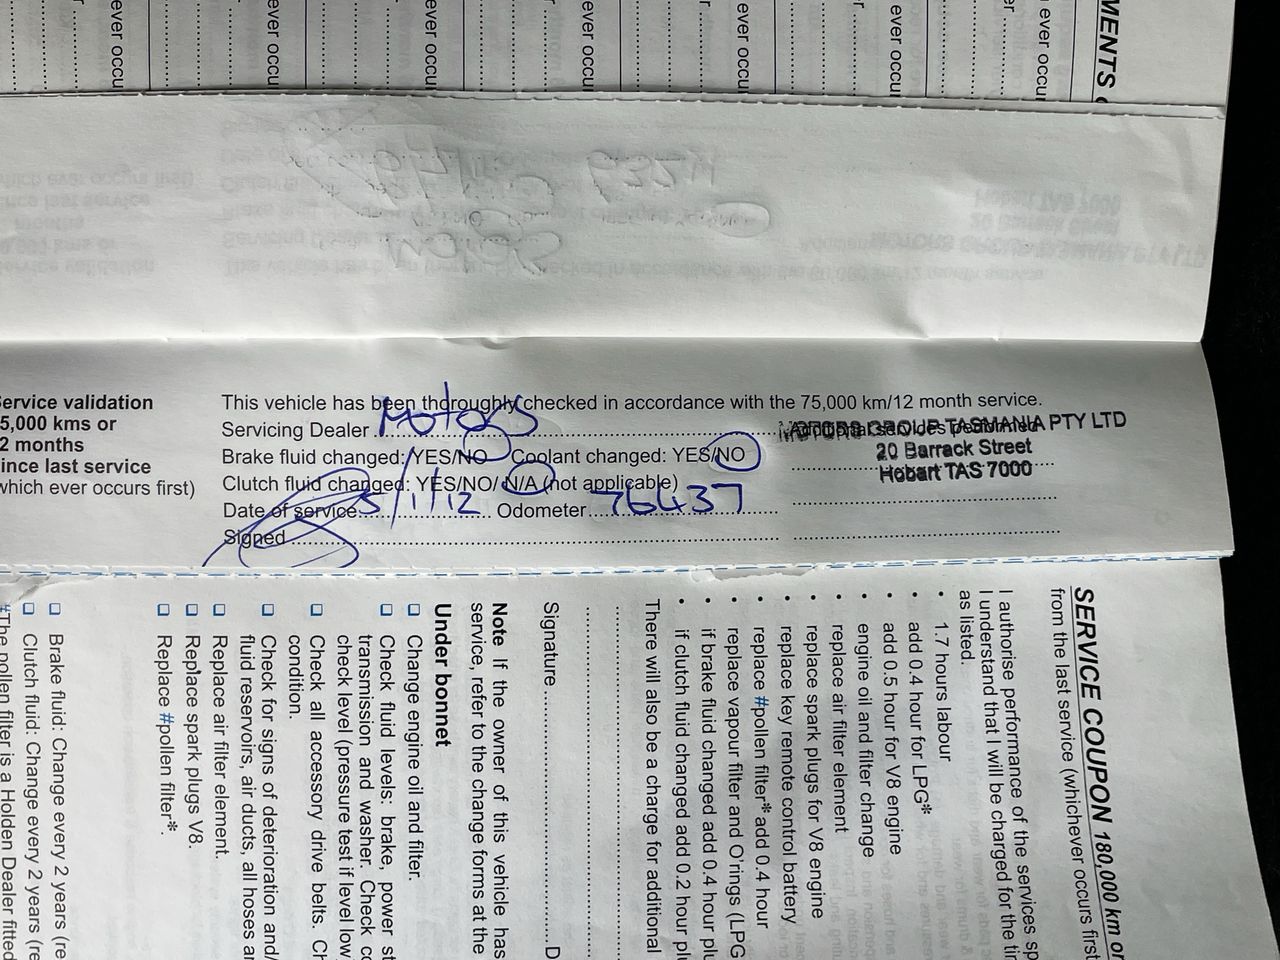 MENTS
ever occu
ever occu
ever occu
ever occu
ever occu
ever occu
ever occu
Service validation
75,000 kms or
12 months
since last service
(which ever occurs first)
This vehicle has been thoroughly checked in accordance with the 75,000 km/12 month service.
Servicing Dealer Motors
Brake fluid changed: YES/NO Coolant changed: YES/NO
Clutch fluid changed: YES/NO/ N/A (not applicable)
Date of service 5/1/12 Odometer 76437
Signed
MOTORS GROUP TASMANIA PTY LTD
20 Barrack Street
Hobart TAS 7000
SERVICE COUPON 180,000 km or
from the last service (whichever occurs first
I authorise performance of the services sp
I understand that I will be charged for the ti
as listed.
• 1.7 hours labour
• add 0.4 hour for LPG*
• add 0.5 hour for V8 engine
• engine oil and filter change
• replace air filter element
• replace spark plugs for V8 engine
• replace key remote control battery
• replace #pollen filter* add 0.4 hour
• replace vapour filter and O'rings (LPG
• if brake fluid changed add 0.4 hour plu
• if clutch fluid changed add 0.2 hour plu
There will also be a charge for additional
Signature D
Note If the owner of this vehicle has
service, refer to the change forms at the
Under bonnet
❑ Change engine oil and filter.
❑ Check fluid levels: brake, power st
transmission and washer. Check co
check level (pressure test if level low
❑ Check all accessory drive belts. Ch
condition.
❑ Check for signs of deterioration and/
fluid reservoirs, air ducts, all hoses ar
❑ Replace air filter element.
❑ Replace spark plugs V8.
❑ Replace #pollen filter*.
❑ Brake fluid: Change every 2 years (re
❑ Clutch fluid: Change every 2 years (re
#The pollen filter is a Holden Dealer fitted